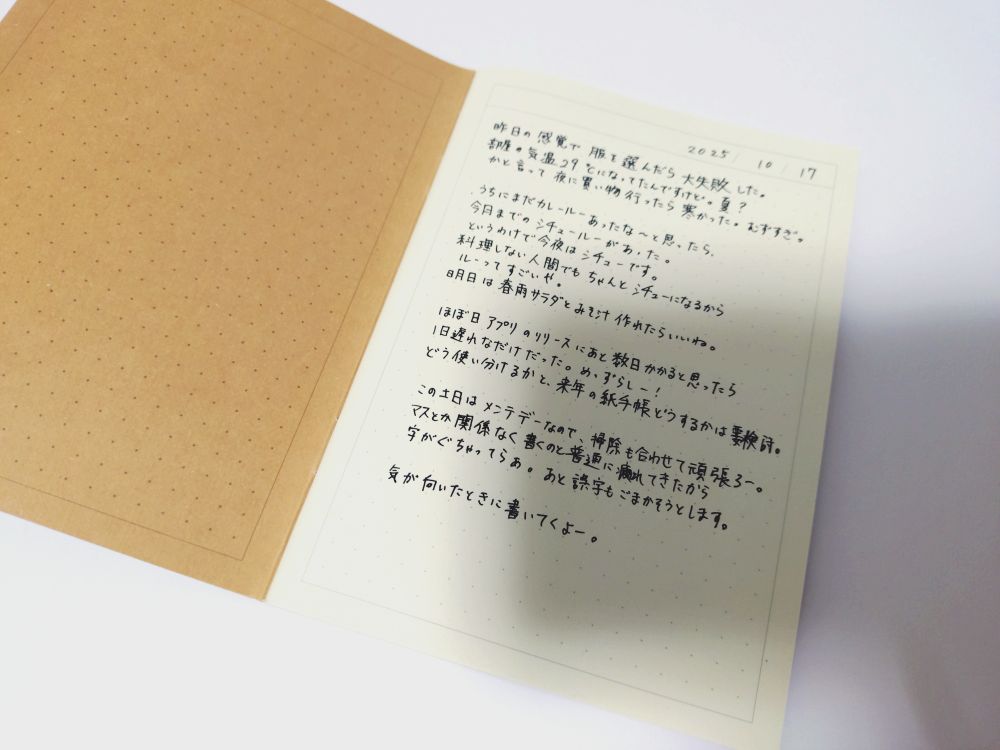 2025/10/17
昨日の感覚で服を選んだら大失敗した。
部屋の気温29℃になってたんですけど。夏?
かと言って夜に買い物行ったら寒かった。むずすぎ。
うちにまだカレールーあったな〜と思ったら、
今月までのシチュールーがあった。
というわけで今夜はシチューです。
料理しない人間でもちゃんとシチューになるから
ルーってすごいや。
明日は春雨サラダとみそ汁作れたらいいね。
ほぼ日アプリのリリースにあと数日かかると思ったら
1日遅れなだけだった。めっずらしー!
どう使い分けるかと、来年の紙手帳どうするかは要検討。
この土日はメンテデーなので、掃除も合わせて頑張ろー。
マスとか関係なく書くのと普通に疲れてきたから
字がぐちゃってらぁ。あと誤字もごまかそうとします。
気が向いたときに書いてくよー。